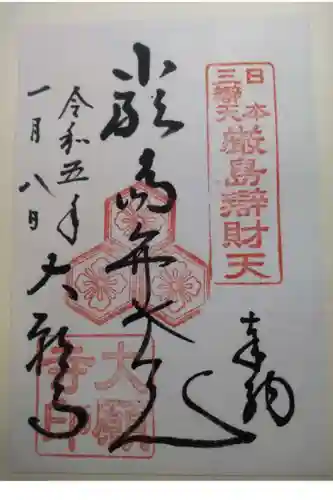 奉納
日本
三辯天
厳島辯財天
厳島弁才天
大願寺印
令和五年
一月八日
大願寺